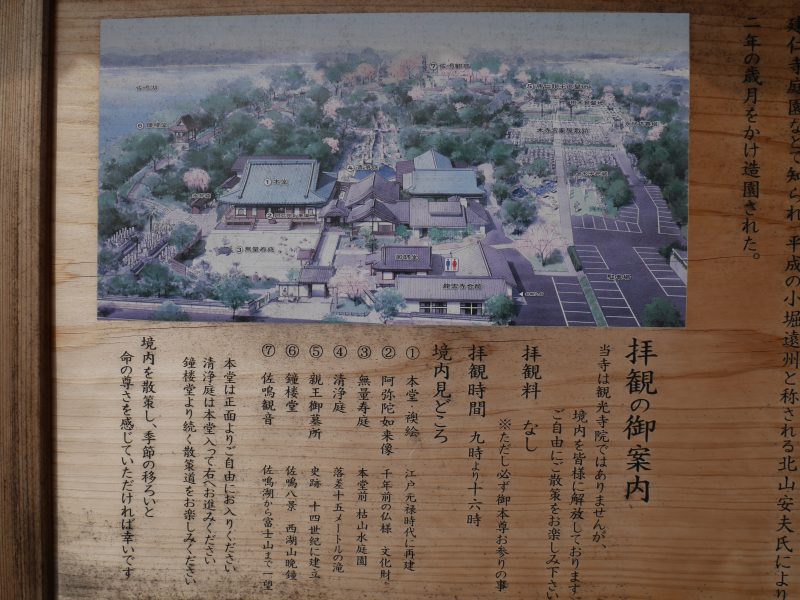 建仁寺庭園などで知られ、平成の小堀遠州と称される北山安夫氏により
二年の歳月をかけ造園された。
拝観の御案内
当寺は観光寺院ではありませんが、
境内を皆様に解放しております。
ご自由にご散策をお楽しみ下さい
拝観料 なし
※ただし必ず御本尊お参りの事
拝観時間 九時より十六時
境内見どころ
① 本堂 襖絵 江戸元禄時代に再建
② 阿弥陀如来像 千年前の仏様 文化財
③ 無量寿庭 本堂前 枯山水庭園
④ 清浄庭 落差十五メートルの滝
⑤ 親王御墓所 史跡 十四世紀に建立
⑥ 鐘楼堂 佐鳴八景 西湖山晩鐘
⑦ 佐鳴観音 佐鳴湖から富士山まで一望
本堂は正面よりご自由にお入りください
清浄庭は本堂入って右へお進みください
鐘楼堂より続く散策道をお楽しみください
境内を散策し、季節の移ろいと
命の尊さを感じていただければ幸いです
佐鳴湖
⑦佐鳴観音
⑥鐘楼堂
①本堂
③無量寿庭
龍雲寺会館
駐車場